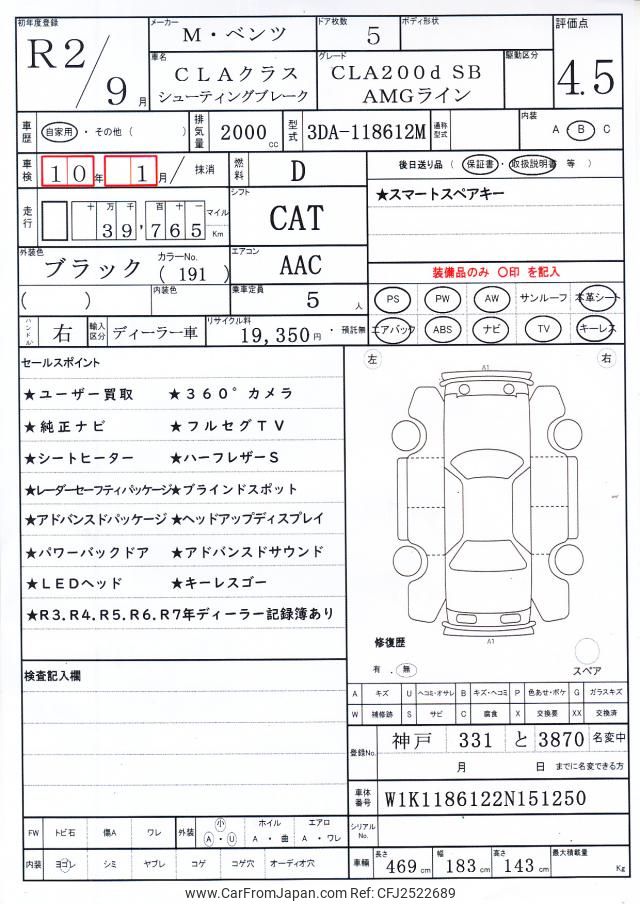 初年度登録
R2/9月
メーカー
M・ベンツ
ドア枚数
5
ボディ形状
評価点
4.5
車名
CLAクラス
シューティングブレーク
グレード
CLA200d SB
AMGライン
駆動区分
車歴
自家用・その他( )
排気量
2000cc
型式
3DA-118612M
通称型式
内装
A・B・C
車検
10年 1月/ 抹消
燃料
D
後日送り品(保証書・取扱説明書 等)
★スマートスペアキー
走行
十万千百十一
39,765
マイル
Km
シフト
CAT
外装色
ブラック
カラーNo.
(191)
エアコン
AAC
装備品のみ ○印 を記入
( )
内装色
乗車定員
5人
PS PW AW サンルーフ 本革シート
エアバック ABS ナビ TV キーレス
ハンドル
右
輸入区分
ディーラー車
リサイクル料
19,350円・預託無
セールスポイント
★ユーザー買取 ★360°カメラ
★純正ナビ ★フルセグTV
★シートヒーター ★ハーフレザーS
★レーダーセーフティパッケージ★ブラインドスポット
★アドバンスドパッケージ ★ヘッドアップディスプレイ
★パワーバックドア ★アドバンスドサウンド
★LEDヘッド ★キーレスゴー
★R3.R4.R5.R6.R7年ディーラー記録簿あり
左
右
A1
A1
修復歴
有 . 無
スペア
検査記入欄
A キズ U ヘコミ・オサレ B キズ・ヘコミ P 色あせ・ボケ G ガラスキズ
W 補修跡 S サビ C 腐食 X 交換要 XX 交換済
登録No.
神戸 331 と 3870 名変中
月 日 までに名変できる方
車体番号
W1K1186122N151250
シリアルNo.
FW トビ石 傷A ワレ
外装 小 A・U ホイル A・曲 エアロ A・ワレ
内装 ヨゴレ シミ ヤブレ コゲ コゲ穴 オーディオ穴
車輌 長さ 469cm 幅 183cm 高さ 143cm 最大積載量 Kg
www.CarFromJapan.com Ref: CFJ2522689